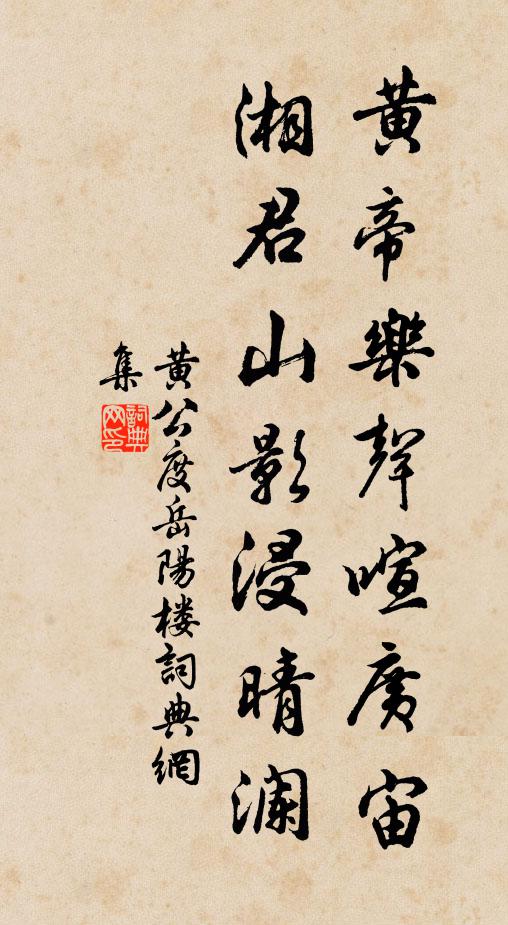 黄帝樂聲喧廣宙
湘君山影浸晴澜
黄公度岳陽楼詞典網
集
詞典网印